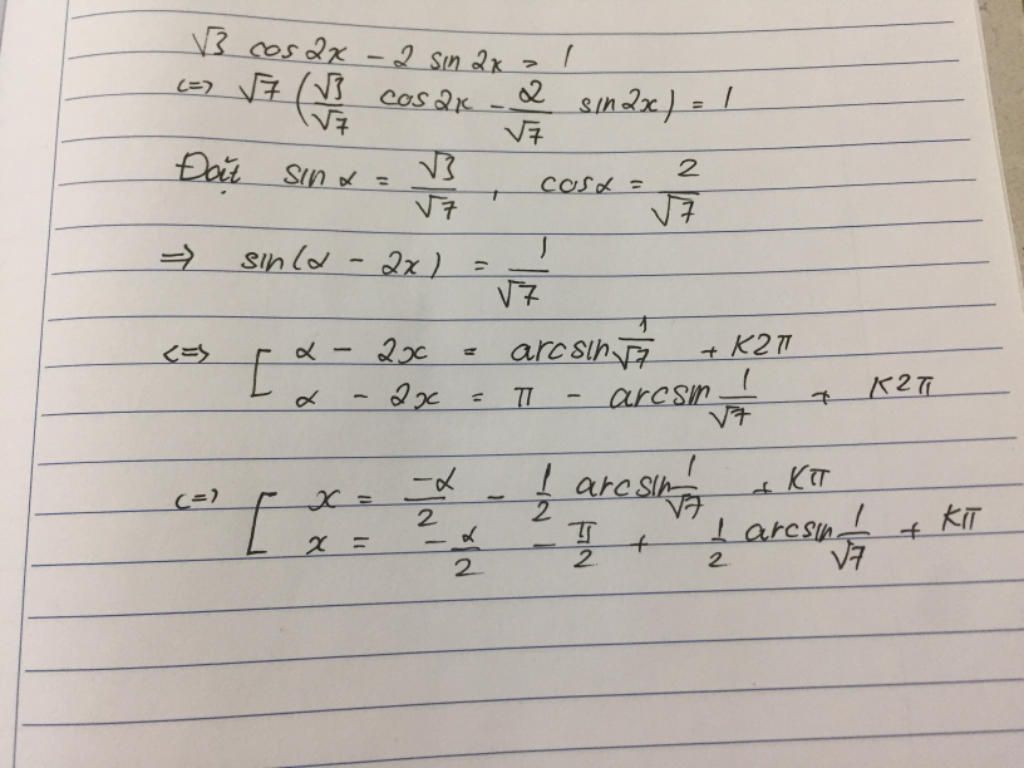 √3 cos2x - 2 sin 2x = 1
<=> √7 (√3/√7 cos2x - 2/√7 sin2x) = 1
Đặt sin α = √3/√7, cosα = 2/√7
=> sin(α - 2x) = 1/√7
<=> [ α - 2x = arcsin 1/√7 + K2π
α - 2x = π - arcsin 1/√7 + K2π
<=> [ x = -α/2 - 1/2 arcsin 1/√7 + Kπ
x = -α/2 - π/2 + 1/2 arcsin 1/√7 + Kπ